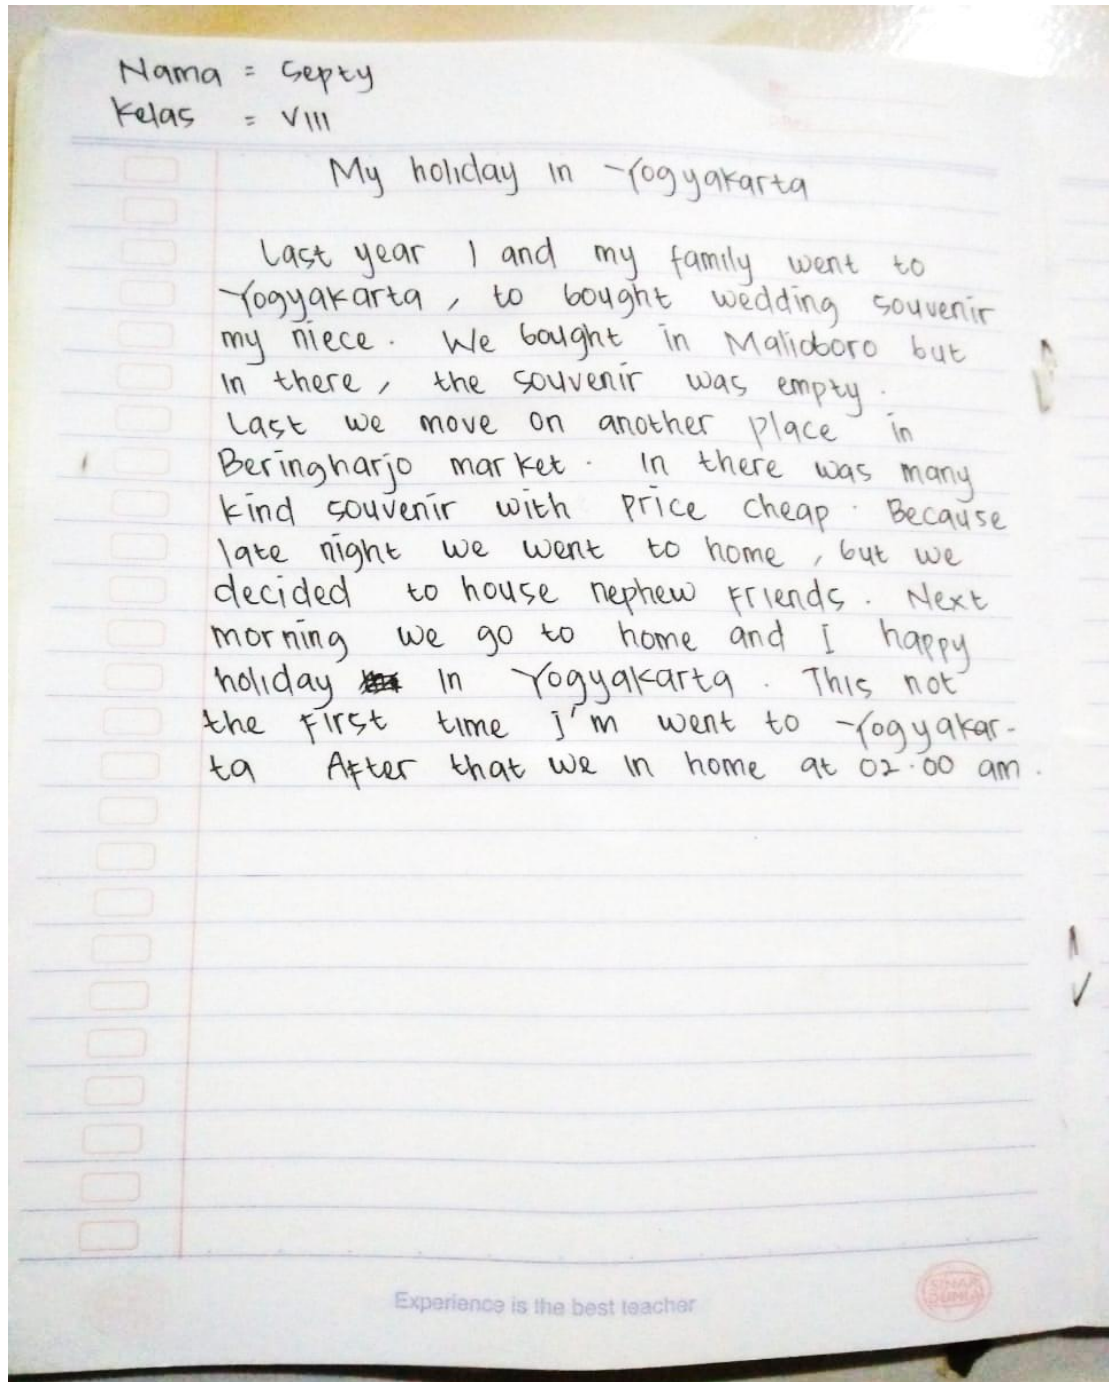 Nama = Septy
Kelas = VIII
My holiday in Yogyakarta
Last year I and my family went to
Yogyakarta, to bought wedding souvenir
my niece. We bought in Malioboro but
in there, the souvenir was empty.
Last we move on another place in
Beringharjo market. In there was many
kind souvenir with price cheap. Because
late night we went to home, but we
decided to house nephew friends. Next
morning we go to home and I happy
holiday in Yogyakarta. This not
the first time i'm went to Yogyakar-
ta After that we in home at 02.00 am.
Experience is the best teacher
SINAR
DUNIA